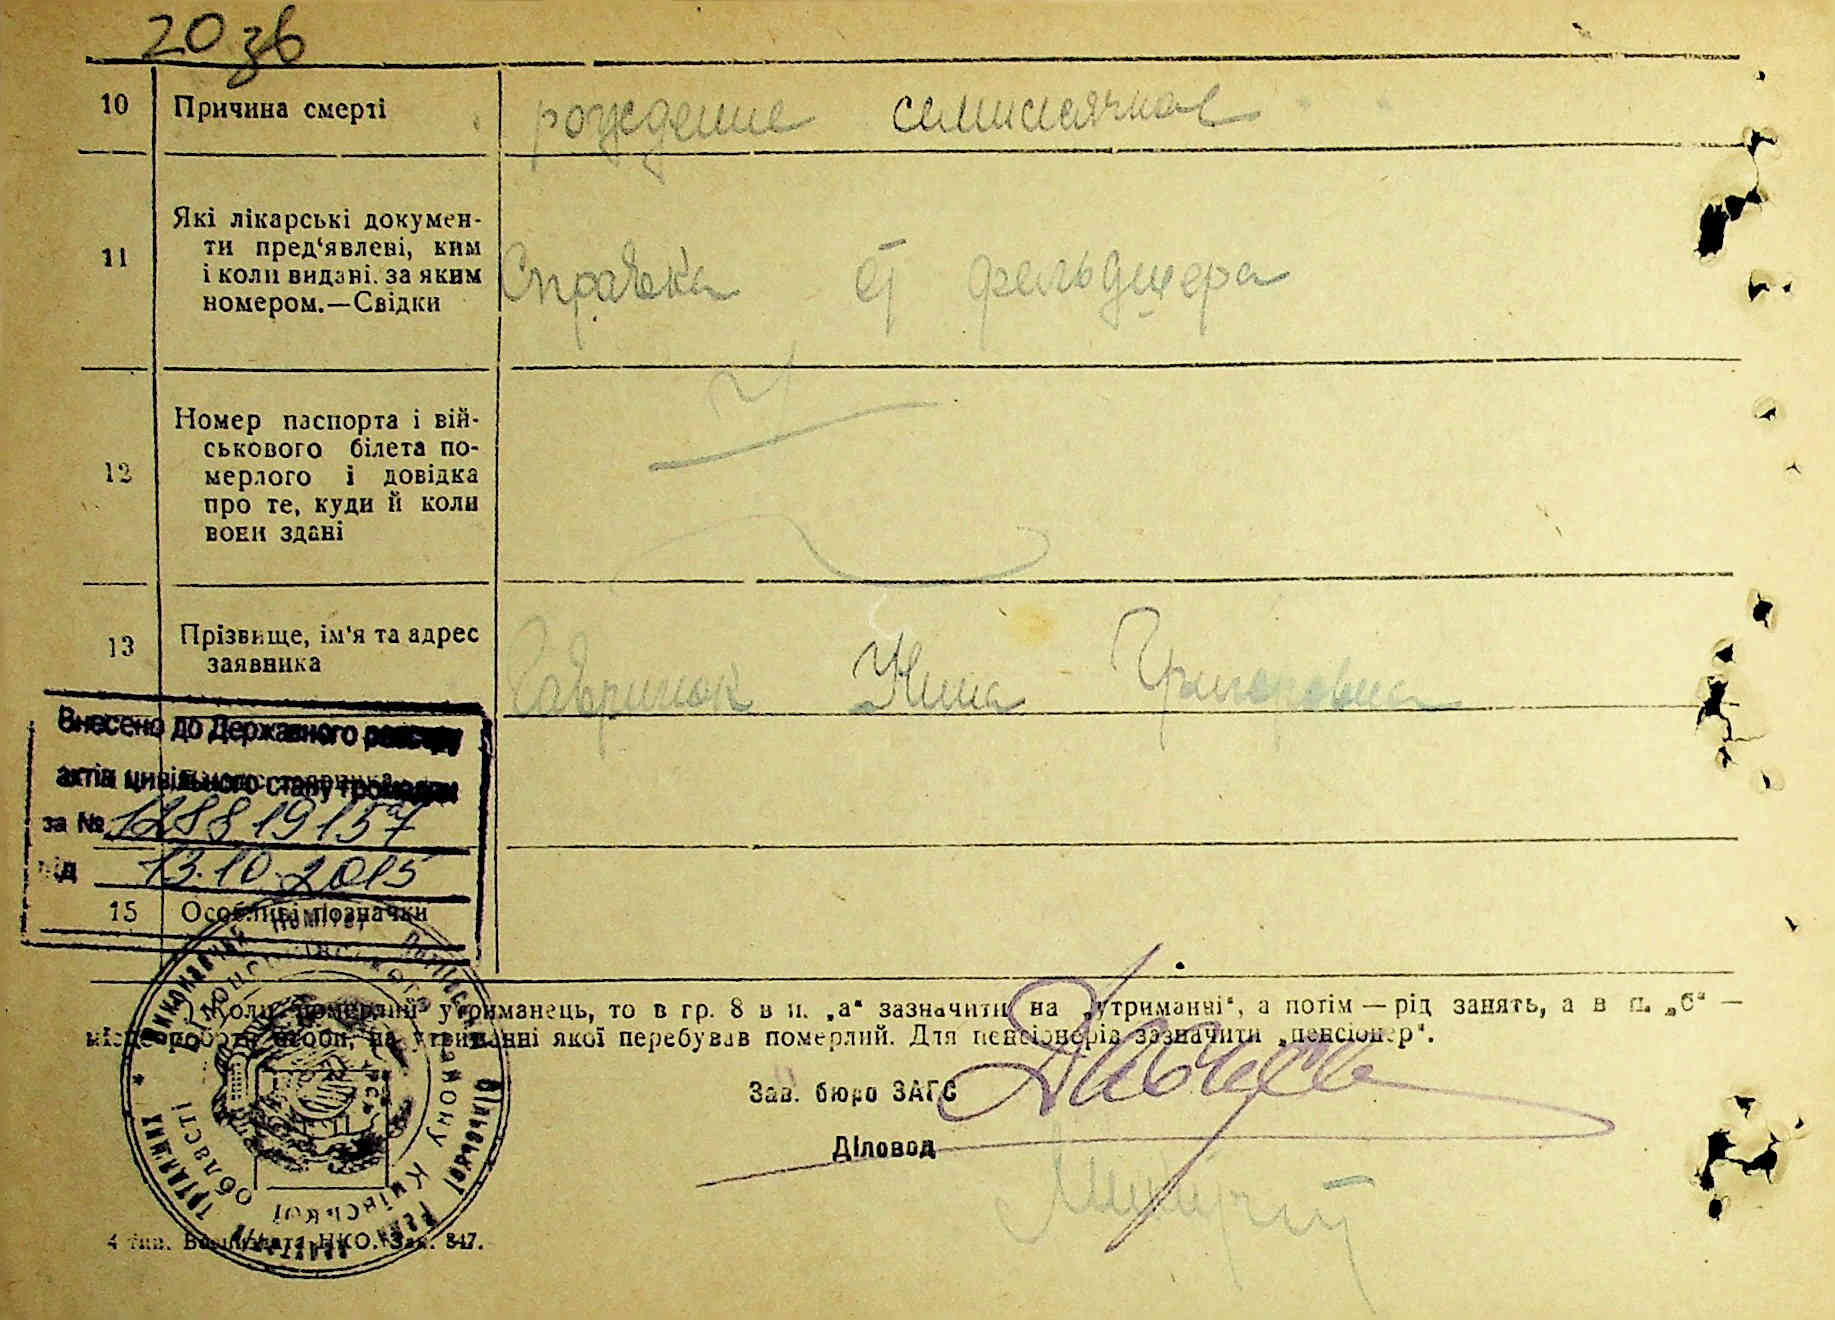 20 зв
10 Причина смерті рождение семимесячное
11 Які лікарські докумен-
ти пред‘явлеві, ким
і коли видані. за яким
номером.—Свідки
Справка от фельдшера
12 Номер паспорта і вій-
ськового білета по-
мерлого і довідка
про те, куди й коли
вони здані
13 Прізвище, ім‘я та адрес
заявника
Нина Григоровна
Внесено до Державного реєстру
актів цивільного стану громадян
за № 128819157
від 13.10.2015
15 Особливі позначки
Виконавчий Комітет
трудящих
Київської області
Коли померлий утриманець, то в гр. 8 в п. „а“ зазначити на „утриманні“, а потім — рід занять, а в п. „б“ —
місце роботи особи, на утриманні якої перебував померлий. Для пенсіонерів зазначити „пенсіонер“.
Зав. бюро ЗАГС
Діловод
4 тип. Воєниздата НКО. Зак. 847.